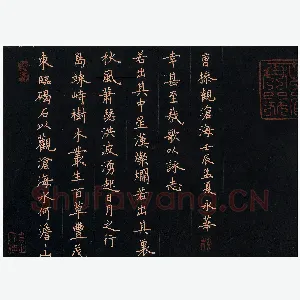 東臨碣石以觀滄海水何澹々山
島竦峙樹木叢生百草豐茂
秋風蕭瑟洪波湧起日月之行
若出其中星漢燦爛若出其裏
幸甚至哉歌以詠志
曹操觀滄海壬辰孟夏永華
Shufawang.CN